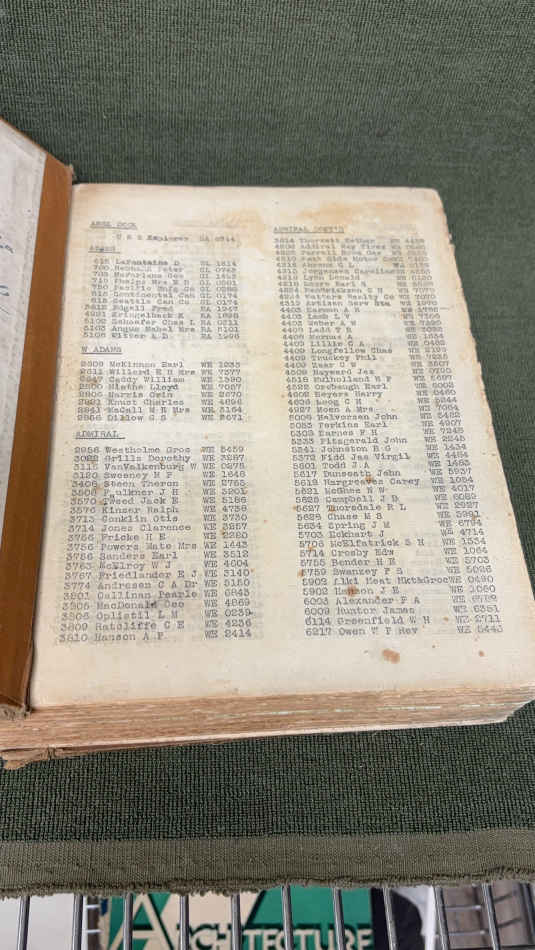 U S S Explorer
615 LaFontaine D GL 1814
700 Neubald Peter GL 0743
705 McFarlane Geo
710 Phelps Mrs E B GL 0565
750 Pacific Bldg Co GL 0288
815 Continental Can GL 0174
815 Seattle Can Co GL 0174
Fred RA 1947
RA 1898
5102 Schaefer Chas L RA 0211
5103 Angus Mabel Mrs RA 5101
5106 Witter A D RA 1996
W ADAMS
2609 McKinnon Earl WE 1233
2611 Willard E H Mrs WE 7377
2647 Caddy William WE 1390
Lloyd WE 7087
2806 Harris Orin WE 2870
2821 Knust Charles WE 4694
2941 McCall M E Mrs WE 3164
2966 Dillow G S WE 2671
ADMIRAL
2956 Westholme Gros WE 5459
3022 Grills Dorothy WE 3287
3115 VanValkenburg W WE 0975
3120 Sweeney H F WE 1648
3408 Steen Theron WE 2765
3508 Faulkner J E WE 3201
3570 Tweed Jack E WE 5186
3576 Kinzer Ralph WE 4738
3713 Conklin Otis WE 3730
3714 Jones Clarence WE 3257
3756 Fricke H E WE 2280
3756 Powers Mate Mrs WE 1443
3756 Sanders Earl WE 3512
3763 McElroy W J WE 4604
3767 Friedlander E J WE 3140
3774 Androsen C A Dr WE 5150
3801 Callinan Pearle WE 6843
3805 MacDonald Geo WE 4869
3806 Oplistil L M WE 0239
3809 Ratcliffe C E WE 4236
3810 Hanson A F WE 2414
ADMIRAL CONT'D
3814 Thorsett Esther WE 4458
4203 Admiral Way Fixes
4205 Farrell Rowe Gar
4210 East Side Motor
4216 Ahrens G L
4215 Jorgensen Caroline
4219 Lynn Leonie
4221 Moore Earl S
4224 Dankwickson C H WE 7070
4224 Watters Realty Co WE 7070
4312 Artisen Serv Sta WE 1790
4403 Harmon A H WE 4786
4403 Lamb L V WE 7366
4403 Weber A W WE 7390
4409 Ladd V B
4409 Morris A WE 1634
4409 Lillie G A WE 0482
4409 Longfellow Chas WE 2199
4409 Truckey Phil WE 7235
4409 Zear G W WE 3607
4509 Hayward Jas WE 0790
4518 Mulholland H F WE 5697
4522 Orebaugh Earl WE 6002
4602 Beyers Harry WE 0466
4606 Loog C H WE 2244
4927 Moen A Mrs WE 7084
5009 Halvorsen John WE 5482
5053 Perkins Earl WE 4907
5303 Barnes F H WE 7248
5333 Fitzgerald John WE 2245
5341 Johnston B G WE 1434
5372 Fidd Jas Virgil WE 4484
5601 Todd J A WE 1683
5617 Dunseath John WE 5937
5618 Hargreaves Carey WE 1054
5621 McGhee N W WE 4017
5625 Campbell J B WE 6089
5627 Thorsdale R L WE 2927
5628 Chase M S WE 5981
5634 Spring J M WE 6794
5703 Eckhart J WE 4714
5706 McElfatrick S H WE 1334
5714 Crosby Edw WE 1064
5755 Bender H E WE 2703
5759 Swanzey F S WE 5026
5902 Alki Meat Mkt&Groc WE 0490
5902 Hanson J E WE 1060
6003 Alexander F A WE 6789
6009 Hunter James WE 6381
6114 Greenfield W H WE 2711
6217 Owen W P Rev WE 5443
ARCHITECTURE